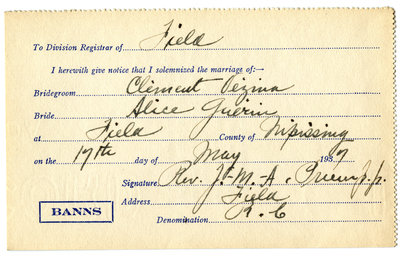 To Division Registrar of Field
I herewith give notice that I solemnized the marriage of:—
Bridegroom Clement Vezina
Bride Alice Guérin
at Field County of Nipissing
on the 17th day of May 1937
Signature Rev. J.-M.-A. p.p.
Address Field
BANNS
Denomination R.C